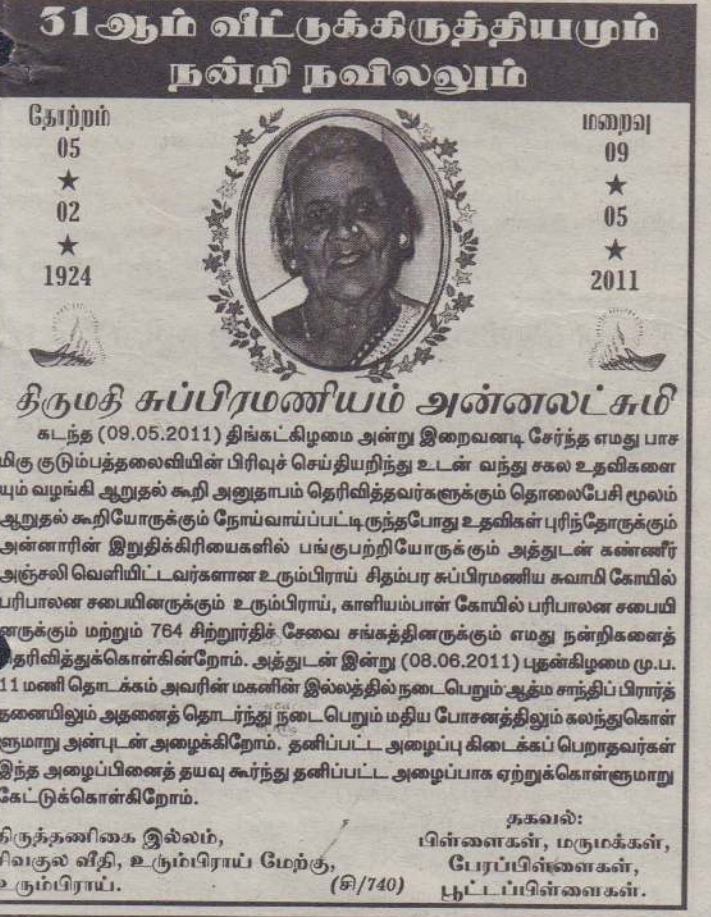 31ஆம் வீட்டுக்கிருத்தியமும்
நன்றி நவிலலும்
தோற்றம்
05
★
02
★
1924
மறைவு
09
★
05
★
2011
திருமதி சுப்பிரமணியம் அன்னலட்சுமி
கடந்த (09.05.2011) திங்கட்கிழமை அன்று இறைவனடி சேர்ந்த எமது பாச
மிகு குடும்பத்தலைவியின் பிரிவுச் செய்தியறிந்து உடன் வந்து சகல உதவிகளை
யும் வழங்கி ஆறுதல் கூறி அனுதாபம் தெரிவித்தவர்களுக்கும் தொலைபேசி மூலம்
ஆறுதல் கூறியோருக்கும் நோய்வாய்ப்பட்டிருந்தபோது உதவிகள் புரிந்தோருக்கும்
அன்னாரின் இறுதிக்கிரியைகளில் பங்குபற்றியோருக்கும் அத்துடன் கண்ணீர்
அஞ்சலி வெளியிட்டவர்களான உரும்பிராய் சிதம்பர சுப்பிரமணிய சுவாமி கோயில்
பரிபாலன சபையினருக்கும் உரும்பிராய், காளியம்பாள் கோயில் பரிபாலன சபையி
னருக்கும் மற்றும் 764 சிற்றூர்திச் சேவை சங்கத்தினருக்கும் எமது நன்றிகளைத்
தெரிவித்துக்கொள்கின்றோம். அத்துடன் இன்று (08.06.2011) புதன்கிழமை மு.ப.
11 மணி தொடக்கம் அவரின் மகனின் இல்லத்தில் நடைபெறும் ஆத்ம சாந்திப் பிரார்த்
தனையிலும் அதனைத் தொடர்ந்து நடைபெறும் மதிய போசனத்திலும் கலந்துகொள்
ளுமாறு அன்புடன் அழைக்கிறோம். தனிப்பட்ட அழைப்பு கிடைக்கப் பெறாதவர்கள்
இந்த அழைப்பினைத் தயவு கூர்ந்து தனிப்பட்ட அழைப்பாக ஏற்றுக்கொள்ளுமாறு
கேட்டுக்கொள்கிறோம்.
திருத்தணிகை இல்லம்,
சிவகுல வீதி, உரும்பிராய் மேற்கு,
உரும்பிராய்.
(சி/740)
தகவல்:
பிள்ளைகள், மருமக்கள்,
பேரப்பிள்ளைகள்,
பூட்டப்பிள்ளைகள்.